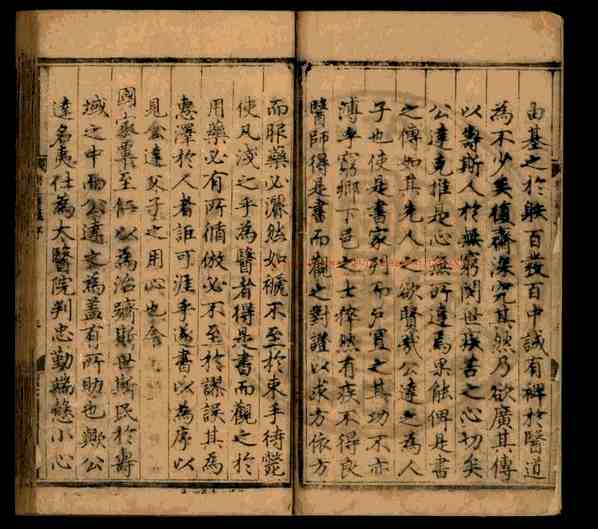 由基之於射百發百中誠有裨於醫道
為不少矣積齋深究其然乃欲廣其傳
以壽斯人於無窮閔世疾苦之心切矣
公達克推是心無所違焉果能俾是書
之傳如其先人之欲賢哉公達之為人
子也使是書家列而戶買之其功不亦
溥乎窮鄉下邑之士猝然有疾不得良
醫師得是書而觀之對證以求方依方
而服藥必灑然如褫不至於束手待斃
使凡淺之乎為醫者得是書而觀之於
用藥必有所循倣必不至於謬誤其為
惠澤於人者詎可涯乎遂書以為序以
見公達父子之用心也
國家
至於以為治躋斯世斯民於壽
域之中而公達之為蓋有所助也歟公
達名夷仕為太醫院判忠勤端愨小心